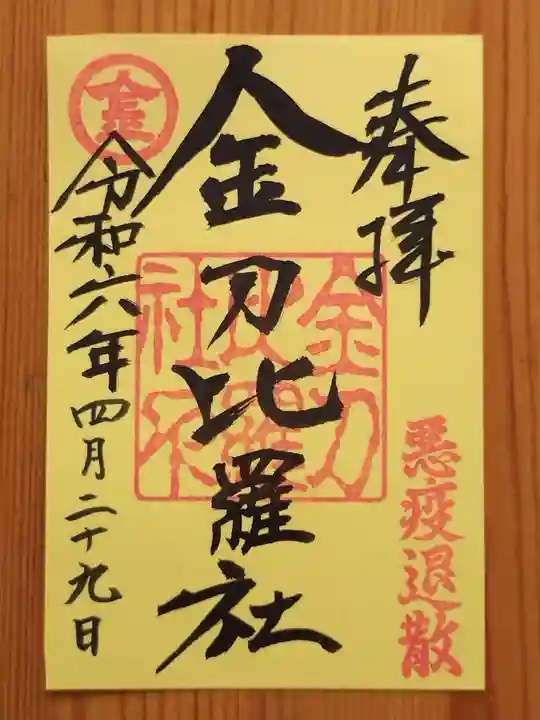 奉拝
悪疫退散
金刀比羅社
令和六年四月二十九日
金